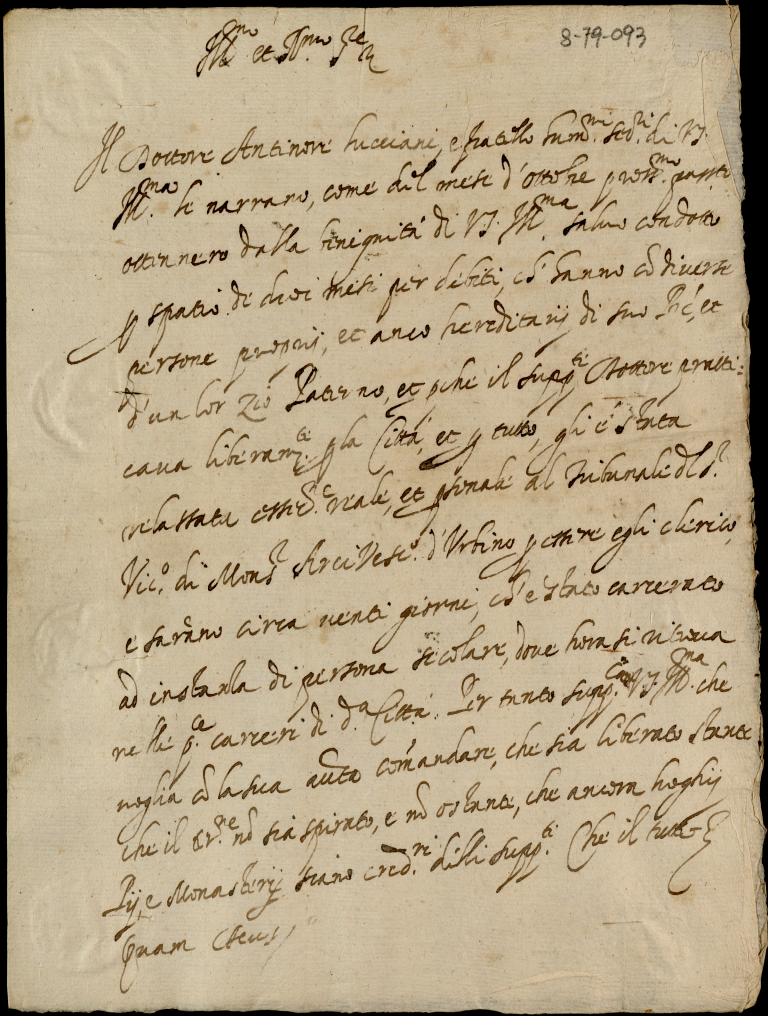 8-79-093
Ill.mo et R.mo S.re
Il Dottore Antinore Lucciani, e fratello hum.mi ser.ri di V.S.
Ill.ma le narrano, come del mese d'ottobre pross.mo passato
ottennero dalla benignità di V.S. Ill.ma salvo condotto
p spatio di dieci mesi per debiti, ch' hanno cō diverse
persone proprij, et anco hereditarij di suo P̄re, et
d'un lor Zio Paterno, et pche il supp.te Dottore pratti=
cava liberam.te p la Città, et p tutto, gli è stata
rela ssata reale, et psonale al Tribunale del S.r
Vic.o di Mons.r Arcivesc.o d'Urbino p essere egli clerico,
e sarāno circa venti giorni, ch' è stato carcerato
ad instanza di persona secolare, dove hora si ritrova
nelle p.e carceri di d.a Città. Per tanto supp.ca V.S. Ill.ma che
voglia cō la sua aut.tà comandare, che sia liberato stante
che il nō sia spirato, e nō ostante, che ancora luoghi
Pij, e Monasterij siano cred.ri delli supp.ti Che il tutto
Quam Deus